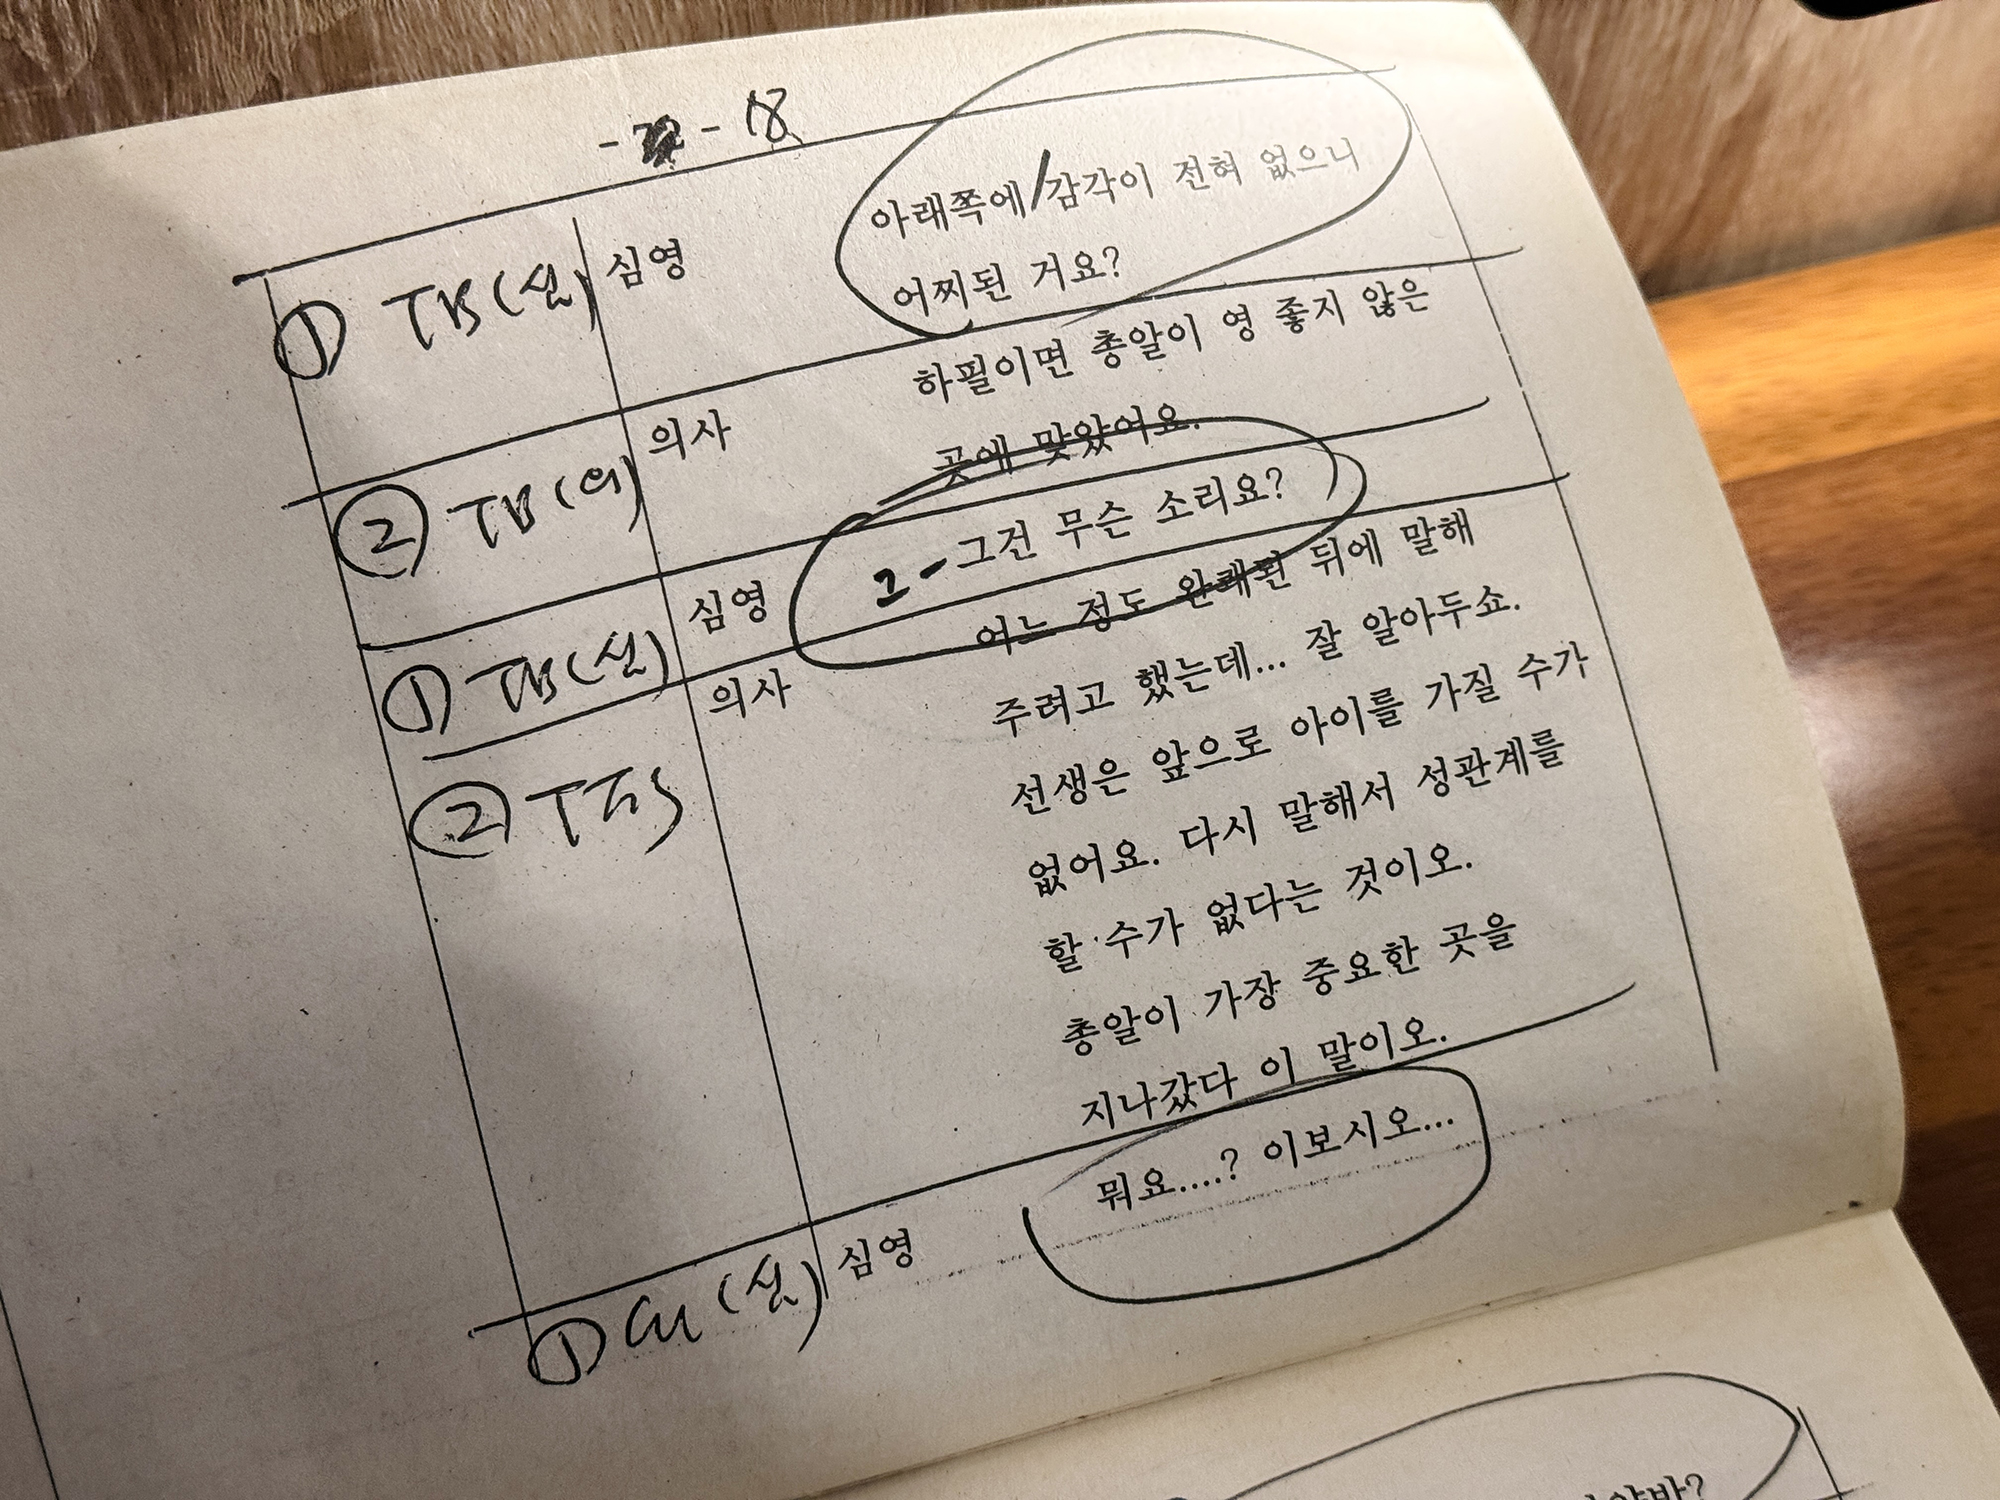 - - 18
① TB(심) 심영 아래쪽에/감각이 전혀 없으니
어찌된 거요?
② TB(의) 의사 하필이면 총알이 영 좋지 않은
곳에 맞았어요.
① TB(심) 심영 그- 그건 무슨 소리요?
② 의사 어느 정도 완쾌된 뒤에 말해
주려고 했는데... 잘 알아두쇼.
선생은 앞으로 아이를 가질 수가
없어요. 다시 말해서 성관계를
할 수가 없다는 것이오.
총알이 가장 중요한 곳을
지나갔다 이 말이오.
① CU(심) 심영 뭐요....? 이보시오...